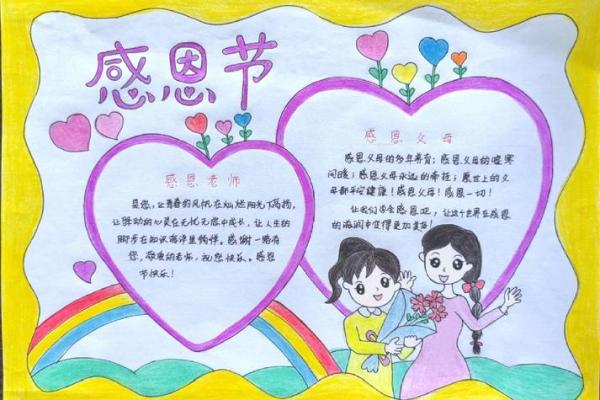 感恩节
感恩老师
是您，让青春的风帆在灿烂阳光下高扬，
让舞动的心灵在无忧无虑中成长，让人生的
脚步在知识海洋里徜徉。感谢一路有
您，敬爱的老师，祝您快乐。感恩
节快乐！
感恩父母
感恩父母的多年养育；感恩父母的嘘寒
问暖；感恩父母永远的牵挂；愿世上的父
母都平安健康！感恩父母！感恩一切！
让我们学会感恩吧，让这个世界在感恩
的海洋中变得更加美好！